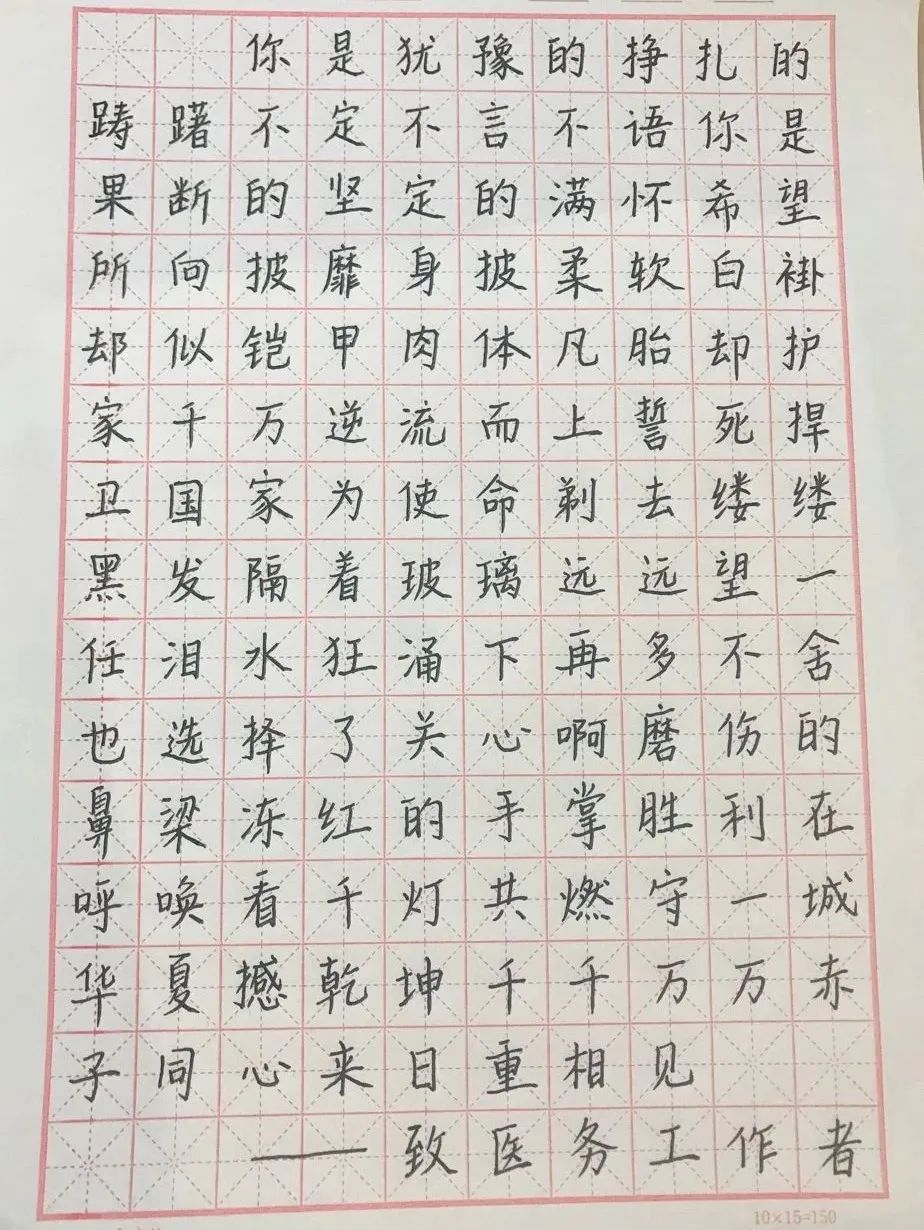 你是犹豫的挣扎的
踌躇不定不言不语你是
果断的坚定的满怀希望
所向披靡身披柔软白褂
却似铠甲肉体凡胎却护
家千万逆流而上誓死捍
卫国家为使命剃去缕缕
黑发隔着玻璃远远望一
任泪水狂涌下再多不舍
也选择了关心啊磨伤的
鼻梁冻红的手掌胜利在
呼唤看千灯共燃守一城
华夏撼乾坤千千万万赤
子同心来日重相见
——致医务工作者
10×15=150